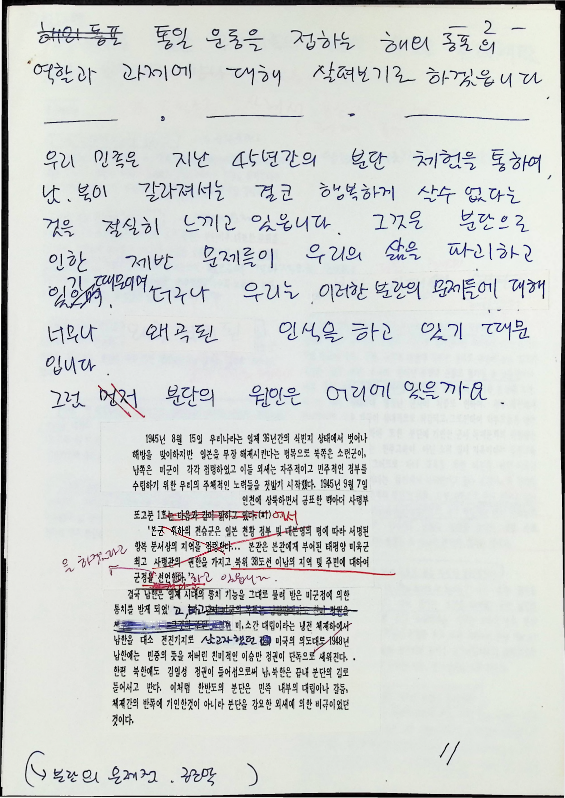 - 2 -
해외 동포 통일 운동을 접하는 해외 동포의
역할과 과제에 대해 살펴보기로 하겠읍니다
우리 민족은 지난 45년간의 분단 체험을 통하여,
남.북이 갈라져서는 결코 행복하게 살수 없다는
것을 절실히 느끼고 있읍니다. 그것은 분단으로
인한 제반 문제들이 우리의 삶을 파괴하고
있기 때문이며,
더우나 우리는 이러한 분단의 문제들에 대해
너무나 왜곡된 인식을 하고 있기 때문
입니다
그럼 먼저 분단의 원인은 어디에 있을까요.
1945년 8월 15일 우리나라는 일제 36년간의 식민지 상태에서 벗어나
해방을 맞이하지만 일본을 무장 해제시킨다는 명목으로 북쪽은 소련군이,
남쪽은 미군이 각각 점령하였고 이들 외세는 자주적이고 민주적인 정부를
수립하기 위한 우리의 주체적인 노력들을 짓밟기 시작했다. 1945년 9월 7일
인천에 상륙하면서 공포한 맥아더 사령부
포고문 1호는 다음과 같이 밝히고 있다. 에서
'본관 휘하의 전승군은 일본 천황 정부 및 대본영의 명에 따라 서명된
항복 문서상의 지역을 점령한다... 본관은 본관에게 부여된 태평양 미육군
최고 사령관의 권한을 가지고 북위 38도선 이남의 지역 및 주민에 대하여
을 하겠다라고
군정을 선언한다.' 하고 있읍니다.
결국 남한은 일제 시대의 통치 기능을 그대로 물려 받은 미군정에 의한
통치를 받게 되었고,
미,소간 대립이라는 냉전 체제하에서
남한을 대소 전진기지로 삼고자 했던 미국의 의도대로 1948년
남한에는 민중의 뜻을 저버린 친미적인 이승만 정권이 단독으로 세워진다.
한편 북한에도 김일성 정권이 들어섬으로써 남,북한은 끝내 분단의 길로
들어서고 만다. 이처럼 한반도의 분단은 민족 내부의 대립이나 갈등,
체제간의 반목에 기인한것이 아니라 분단을 강요한 외세에 의한 비극이었던
것이다.
11
(↳ 분단의 문제점.